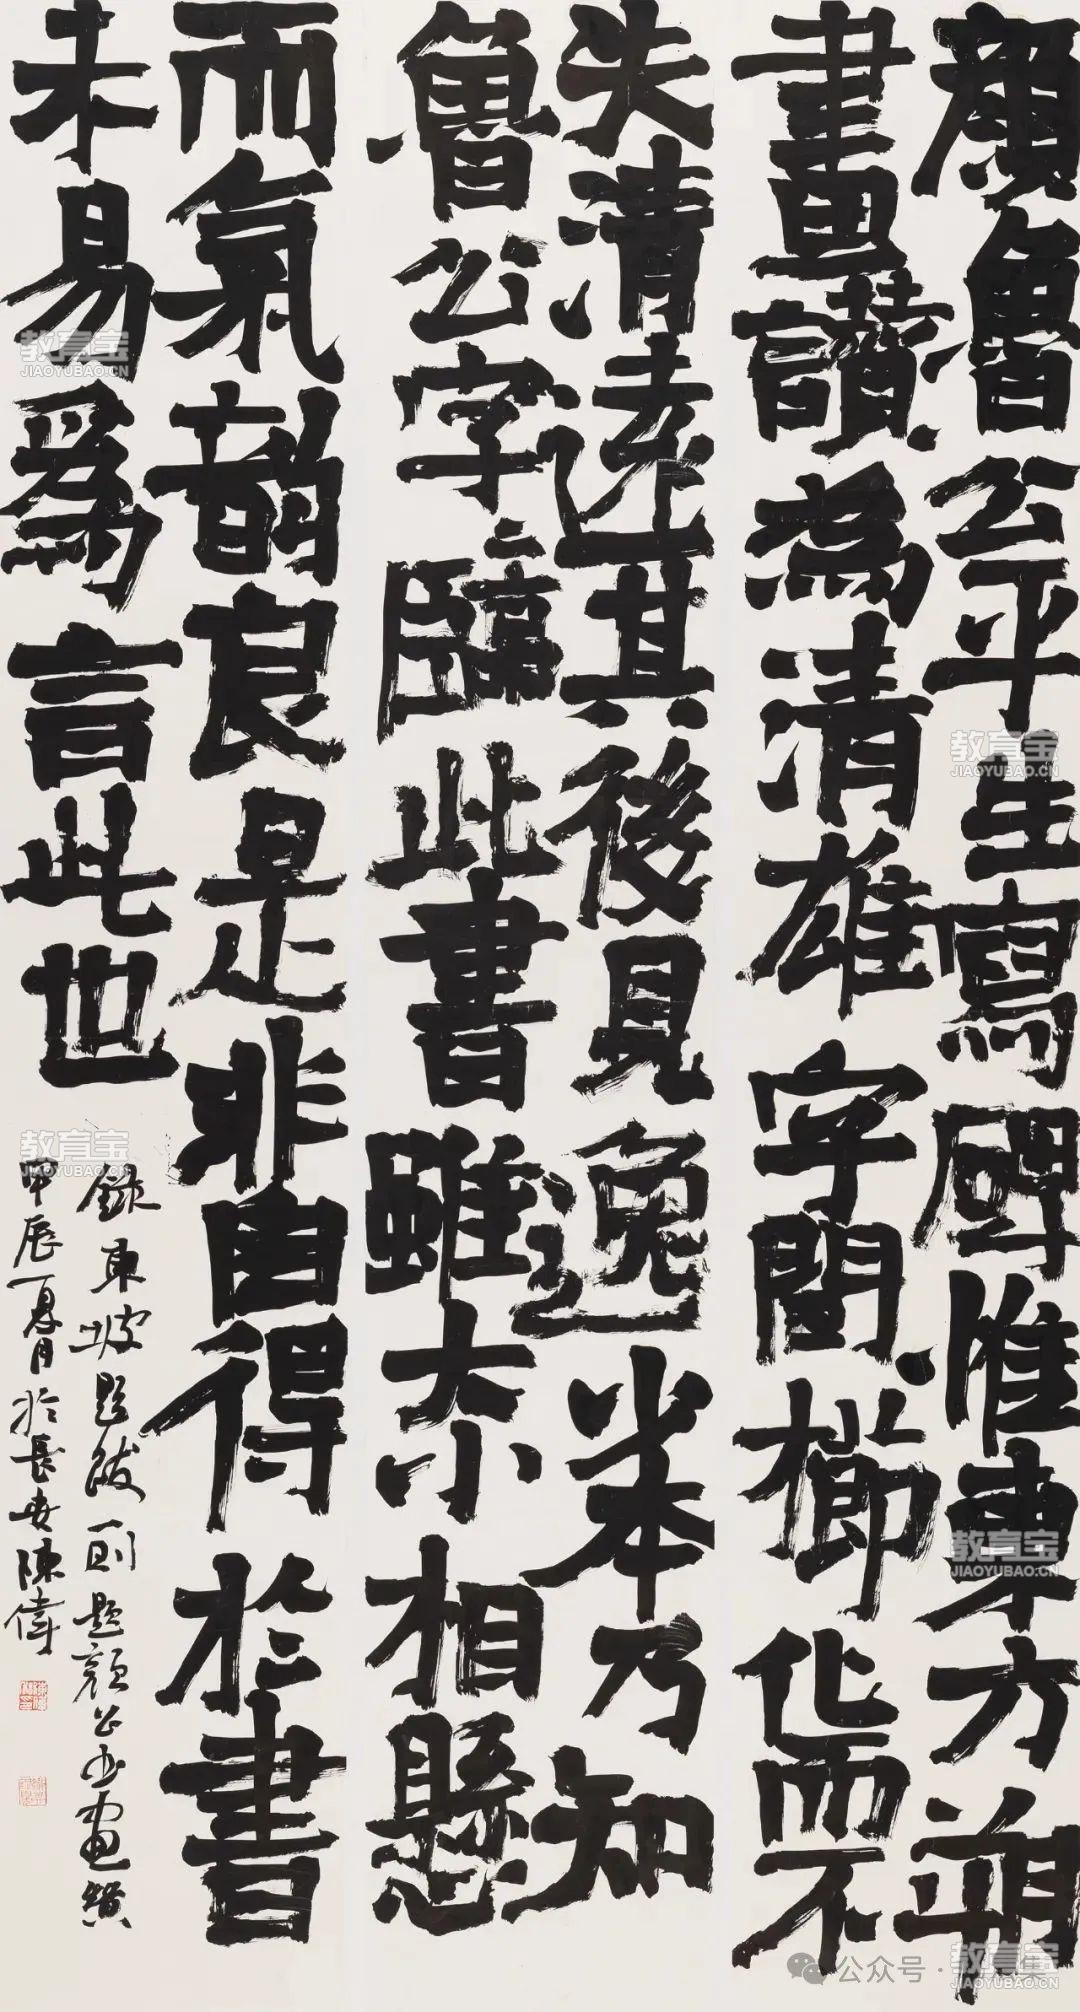 顏魯公平生寫碑惟東方朔
畫讚為清雄字間櫛比而不
失清遠其後見逸少本乃知
魯公字々臨此書雖大小相懸
而氣韻良是非自得於書
未易爲言此也
錄東坡題跋一則題顏公書畫贊
甲辰夏月於長安陳偉
教育宝
JIAOYUBAO.CN
教育宝
JIAOYUBAO.CN
教育宝
JIAOYUBAO.CN
教育宝
JIAOYUBAO.CN
教育宝
JIAOYUBAO.CN
公众号